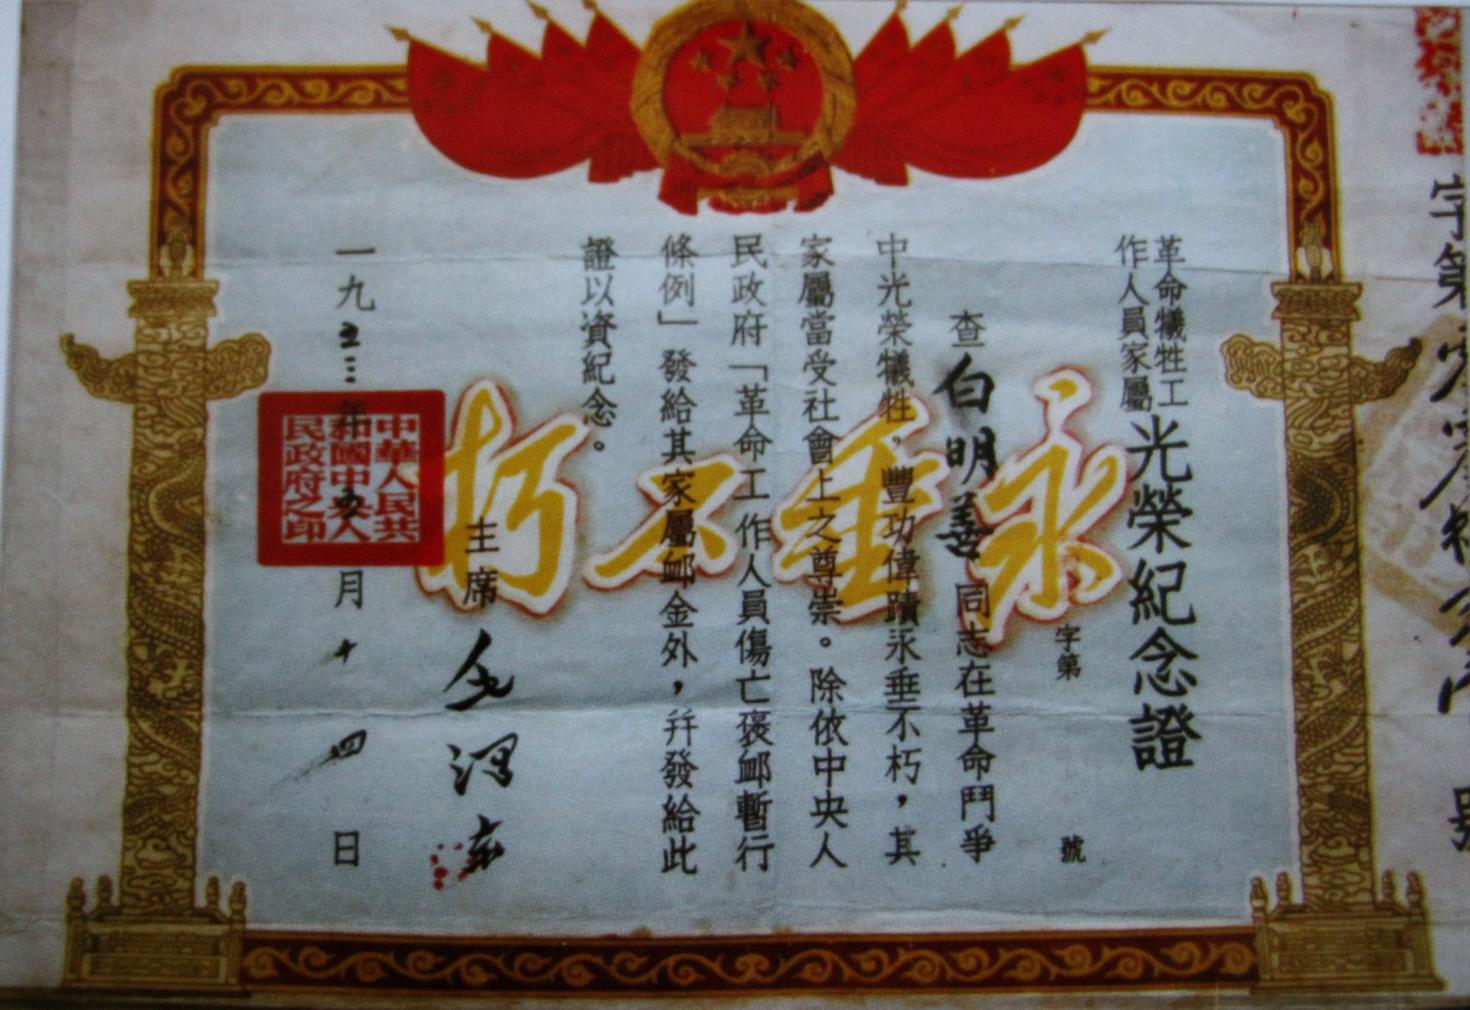 革命犧牲工
作人員家屬
光榮紀念證
字第 號
查白明善同志在革命鬥爭
中光榮犧牲,豐功偉蹟永垂不朽,其
家屬當受社會上之尊崇。除依中央人
民政府「革命工作人員傷亡褒卹暫行
條例」發給其家屬卹金外,幷發給此
證以資紀念。
主席 毛澤東
一九五 年 五 月十四日
永垂不朽
中華人民共
和國中央人
民政府之印
字第 號